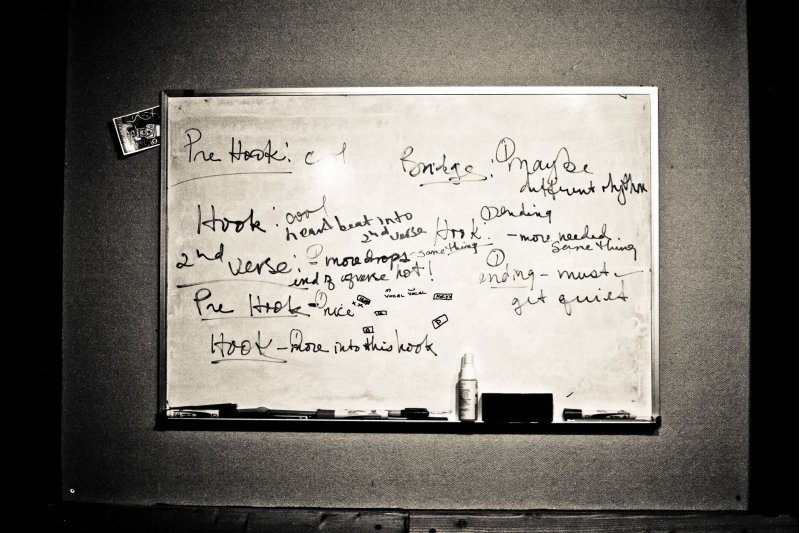 Pre Hook: cool
Hook: cool
heart beat into
2nd verse
2nd verse: more drops
something
end of verse hot!
Pre Hook - nice
Hook - more into this hook
Bridge: ① maybe
different rhythm
Hook: ① ending
- more needed
something
① ending - must
get quiet